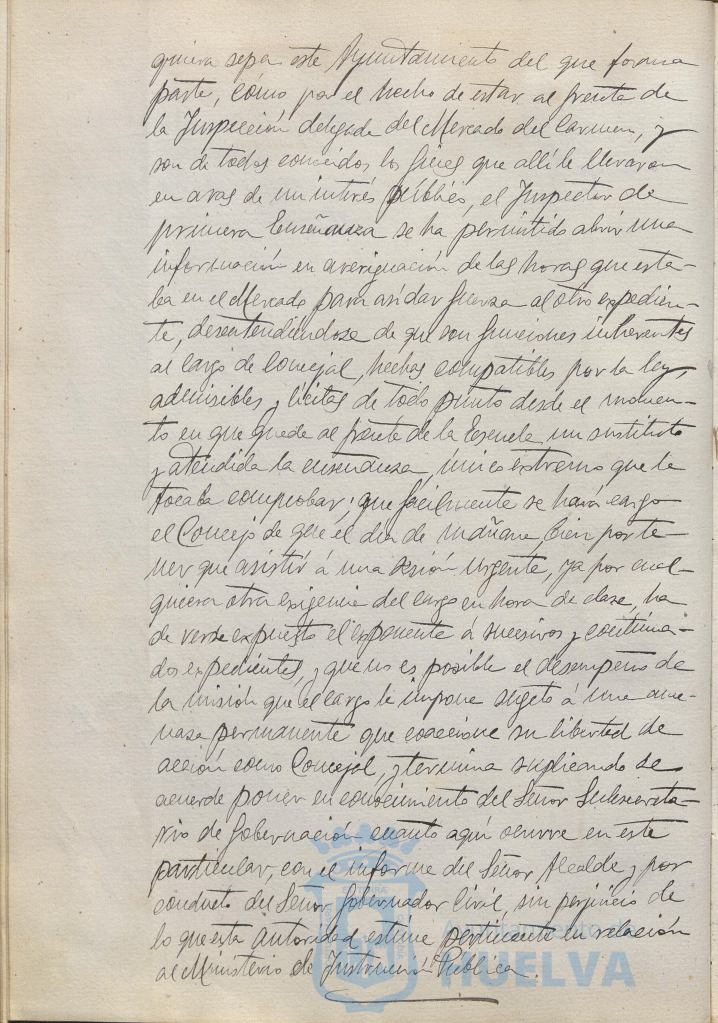 quiera sepa este Ayuntamiento del que forma
parte, cómo por el hecho de estar al frente de
la Inspección delegada del Mercado del Carmen, y
son de todos conocidos los fines que allí le llevaron
en aras de un interés público, el Inspector de
primera Enseñanza se ha permitido abrir una
información en averiguación de las horas que esta-
ba en el Mercado para así dar fuerza al otro expedien-
te, desentendiéndose de que son funciones inherentes
al cargo de Concejal, hechas compatibles por la ley,
admisibles y lícitas de todo punto desde el momen-
to en que quede al frente de la Escuela un sustituto
y atendida la enseñanza, único extremo que le
tocaba comprobar; que fácilmente se hará cargo
el Concejo de que el día de mañana bien por te-
ner que asistir á una sesión urgente, ya por cual-
quiera otra exigencia del cargo en hora de clase, ha
de verse expuesto el exponente á sucesivos y continua-
dos expedientes, y que no es posible el desempeño de
la misión que el cargo le impone sugeto á una ame-
naza permanente que coaccione su libertad de
acción como Concejal, y termina suplicando se
acuerde poner en conocimiento del Señor Subsecreta-
rio de Gobernación cuanto aquí ocurre en este
particular, con el informe del Señor Alcalde y por
conducto del Señor Gobernador Civil, sin perjuicio de
lo que esta Autoridad estime pertinente en relación
al Ministerio de Instrucción Pública.
Ayuntamiento
HUELVA